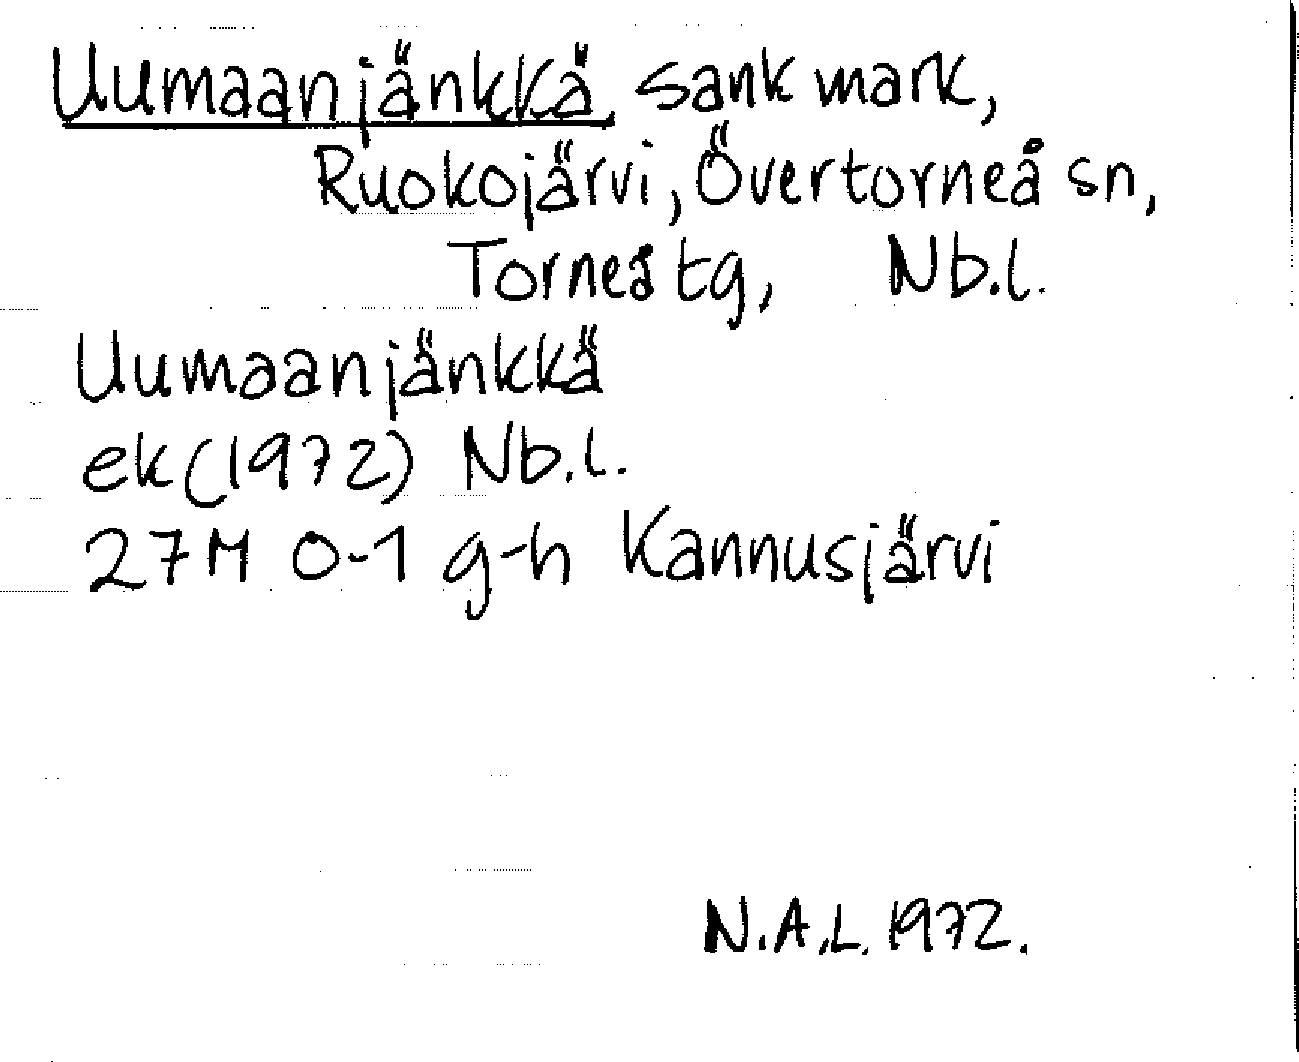 Uumaanjänkkä, sank mark,
Ruokojärvi, Övertorneå sn,
Torneå tg, Nb.l.
Uumaanjänkkä
ek (1972) Nb.l.
27M 0-1 g-h Kannusjärvi
N.A.L. 1972.